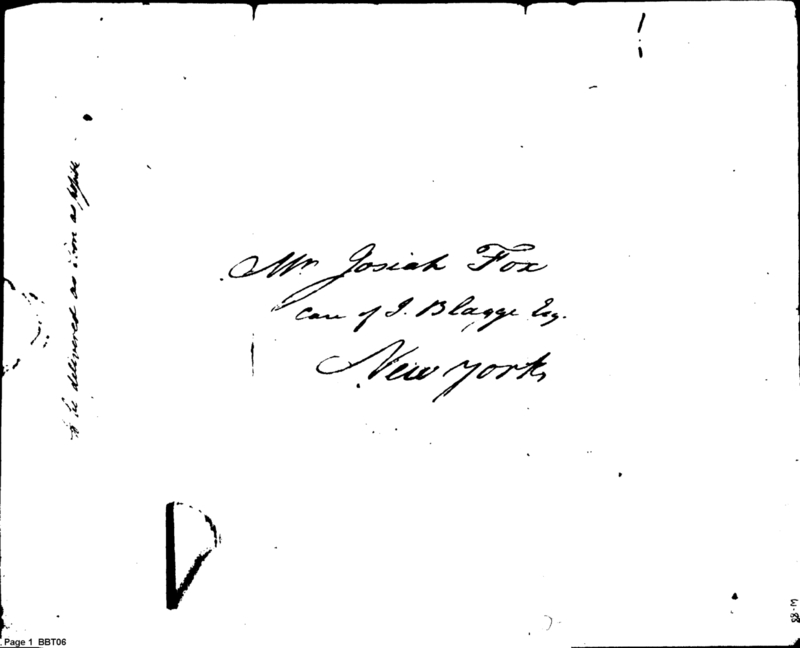 Mr. Josiah Fox
care of J. Blagge Esq.
New York
to be delivered as soon as possible
M-88
Page 1 BBT06